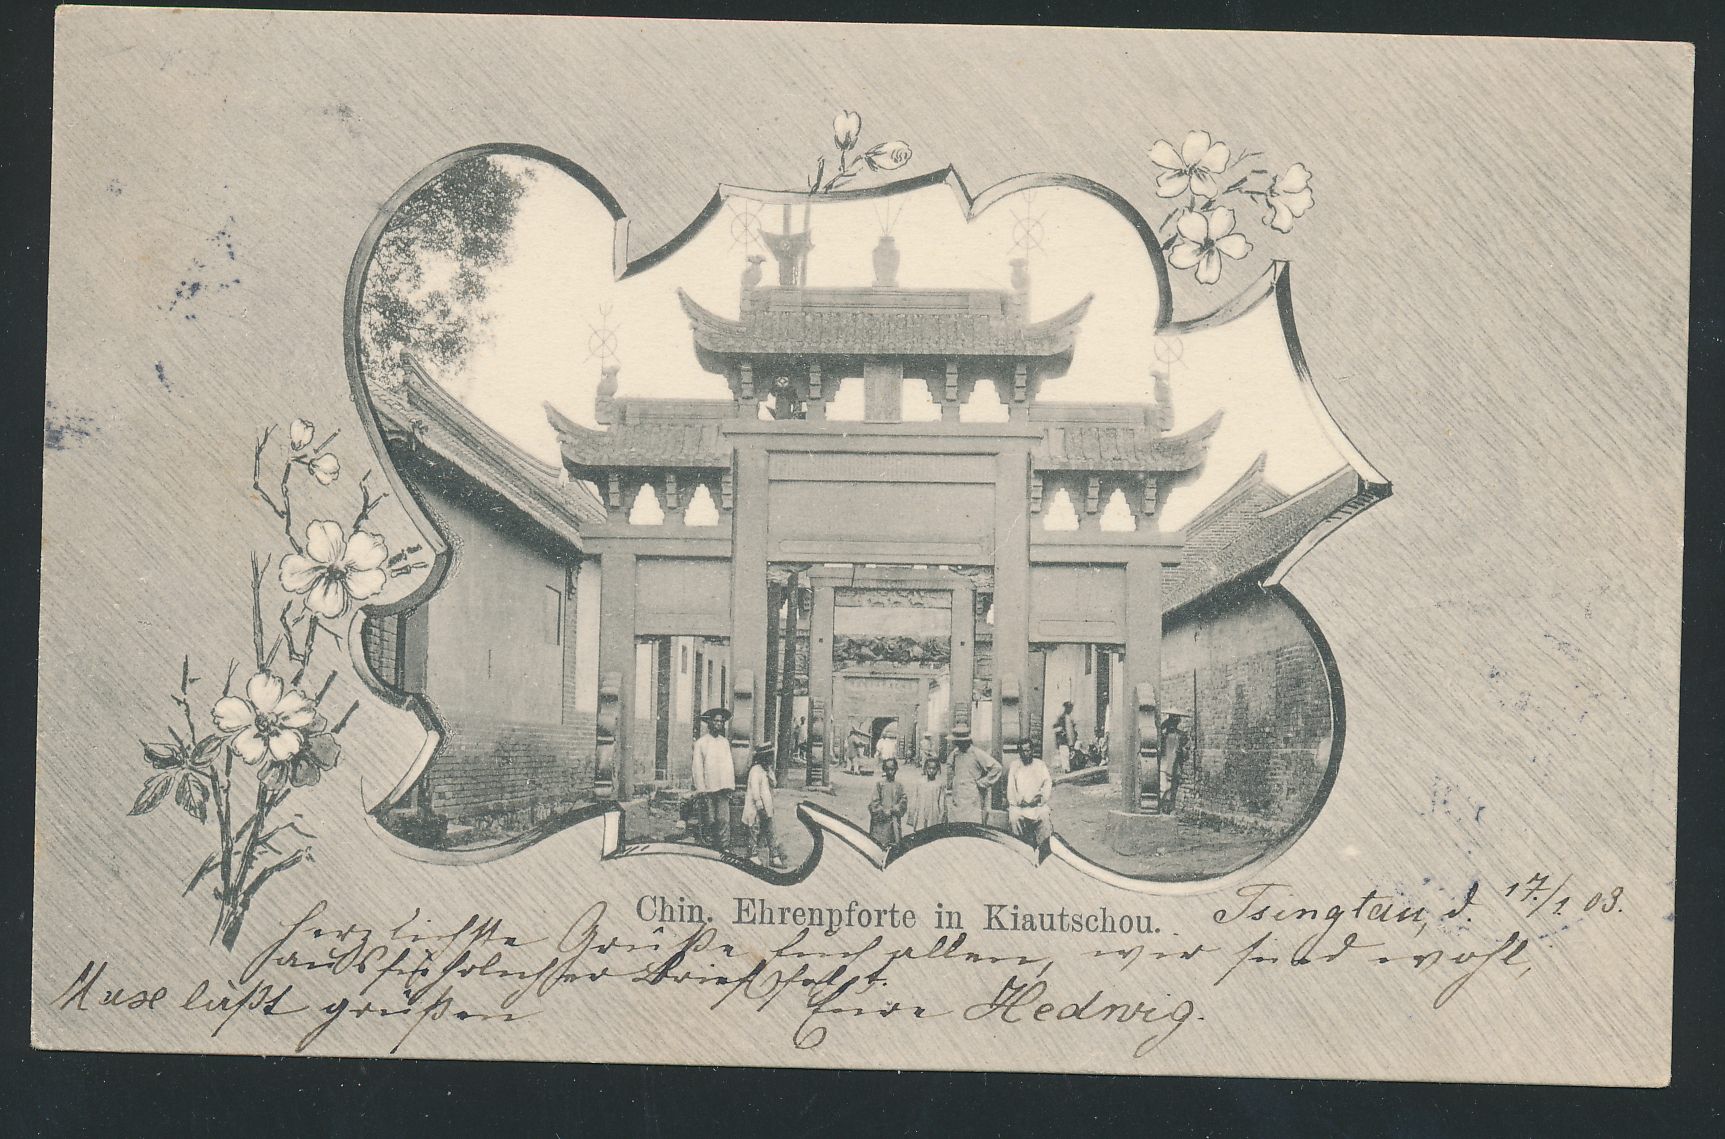 Chin. Ehrenpforte in Kiautschou.
Tsingtau, d. 17./1. 03.
Herzlichste Grüße Euch allen, wir sind wohl,
ausführlicher Brief folgt.
Maxe läßt grüßen
Eure Hedwig.